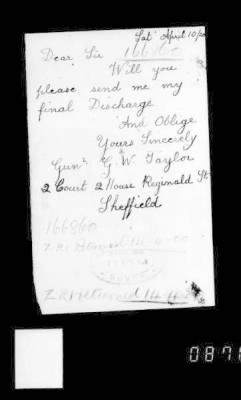 Sat April 10/20
Dear Sir 166860
Will you
please send me my
final Discharge
And Oblige
Yours Sincerely
Gunr G. W. Taylor
2 Court 2 House Reginald St
Sheffield
166860
Z R
Z R Returned 14
087